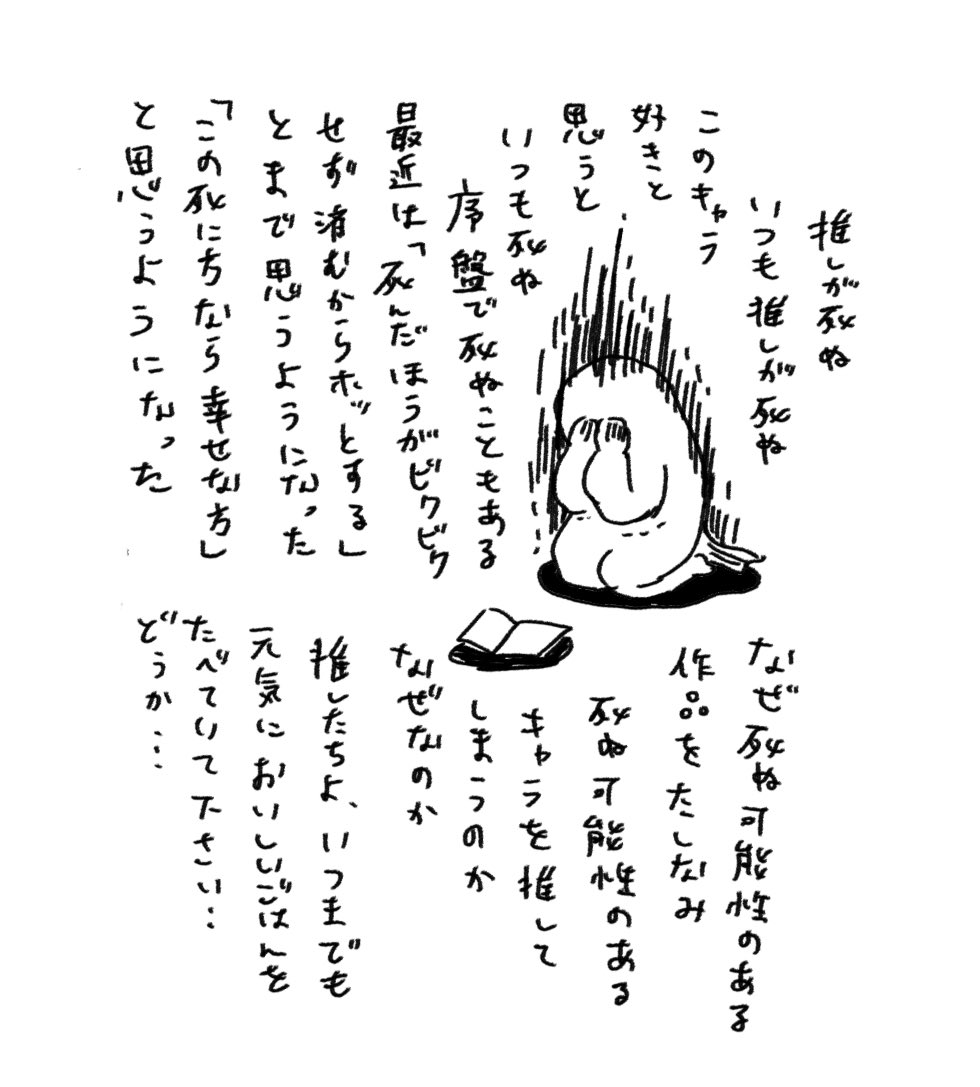 推しが死ぬ
いつも推しが死ぬ
このキャラ
好きと
思うと
いつも死ぬ
序盤で死ぬこともある
最近は「死んだほうがビクビク
せず済むからホッとする」
とまで思うようになった
「この死にちなら幸せな方」
と思うようになった
なぜ死ぬ可能性のある
作品をたしなみ
死ぬ可能性のある
キャラを推して
しまうのか
なぜなのか
推したちよ、いつまでも
元気においしいごはんを
たべていて下さい…
どうか…